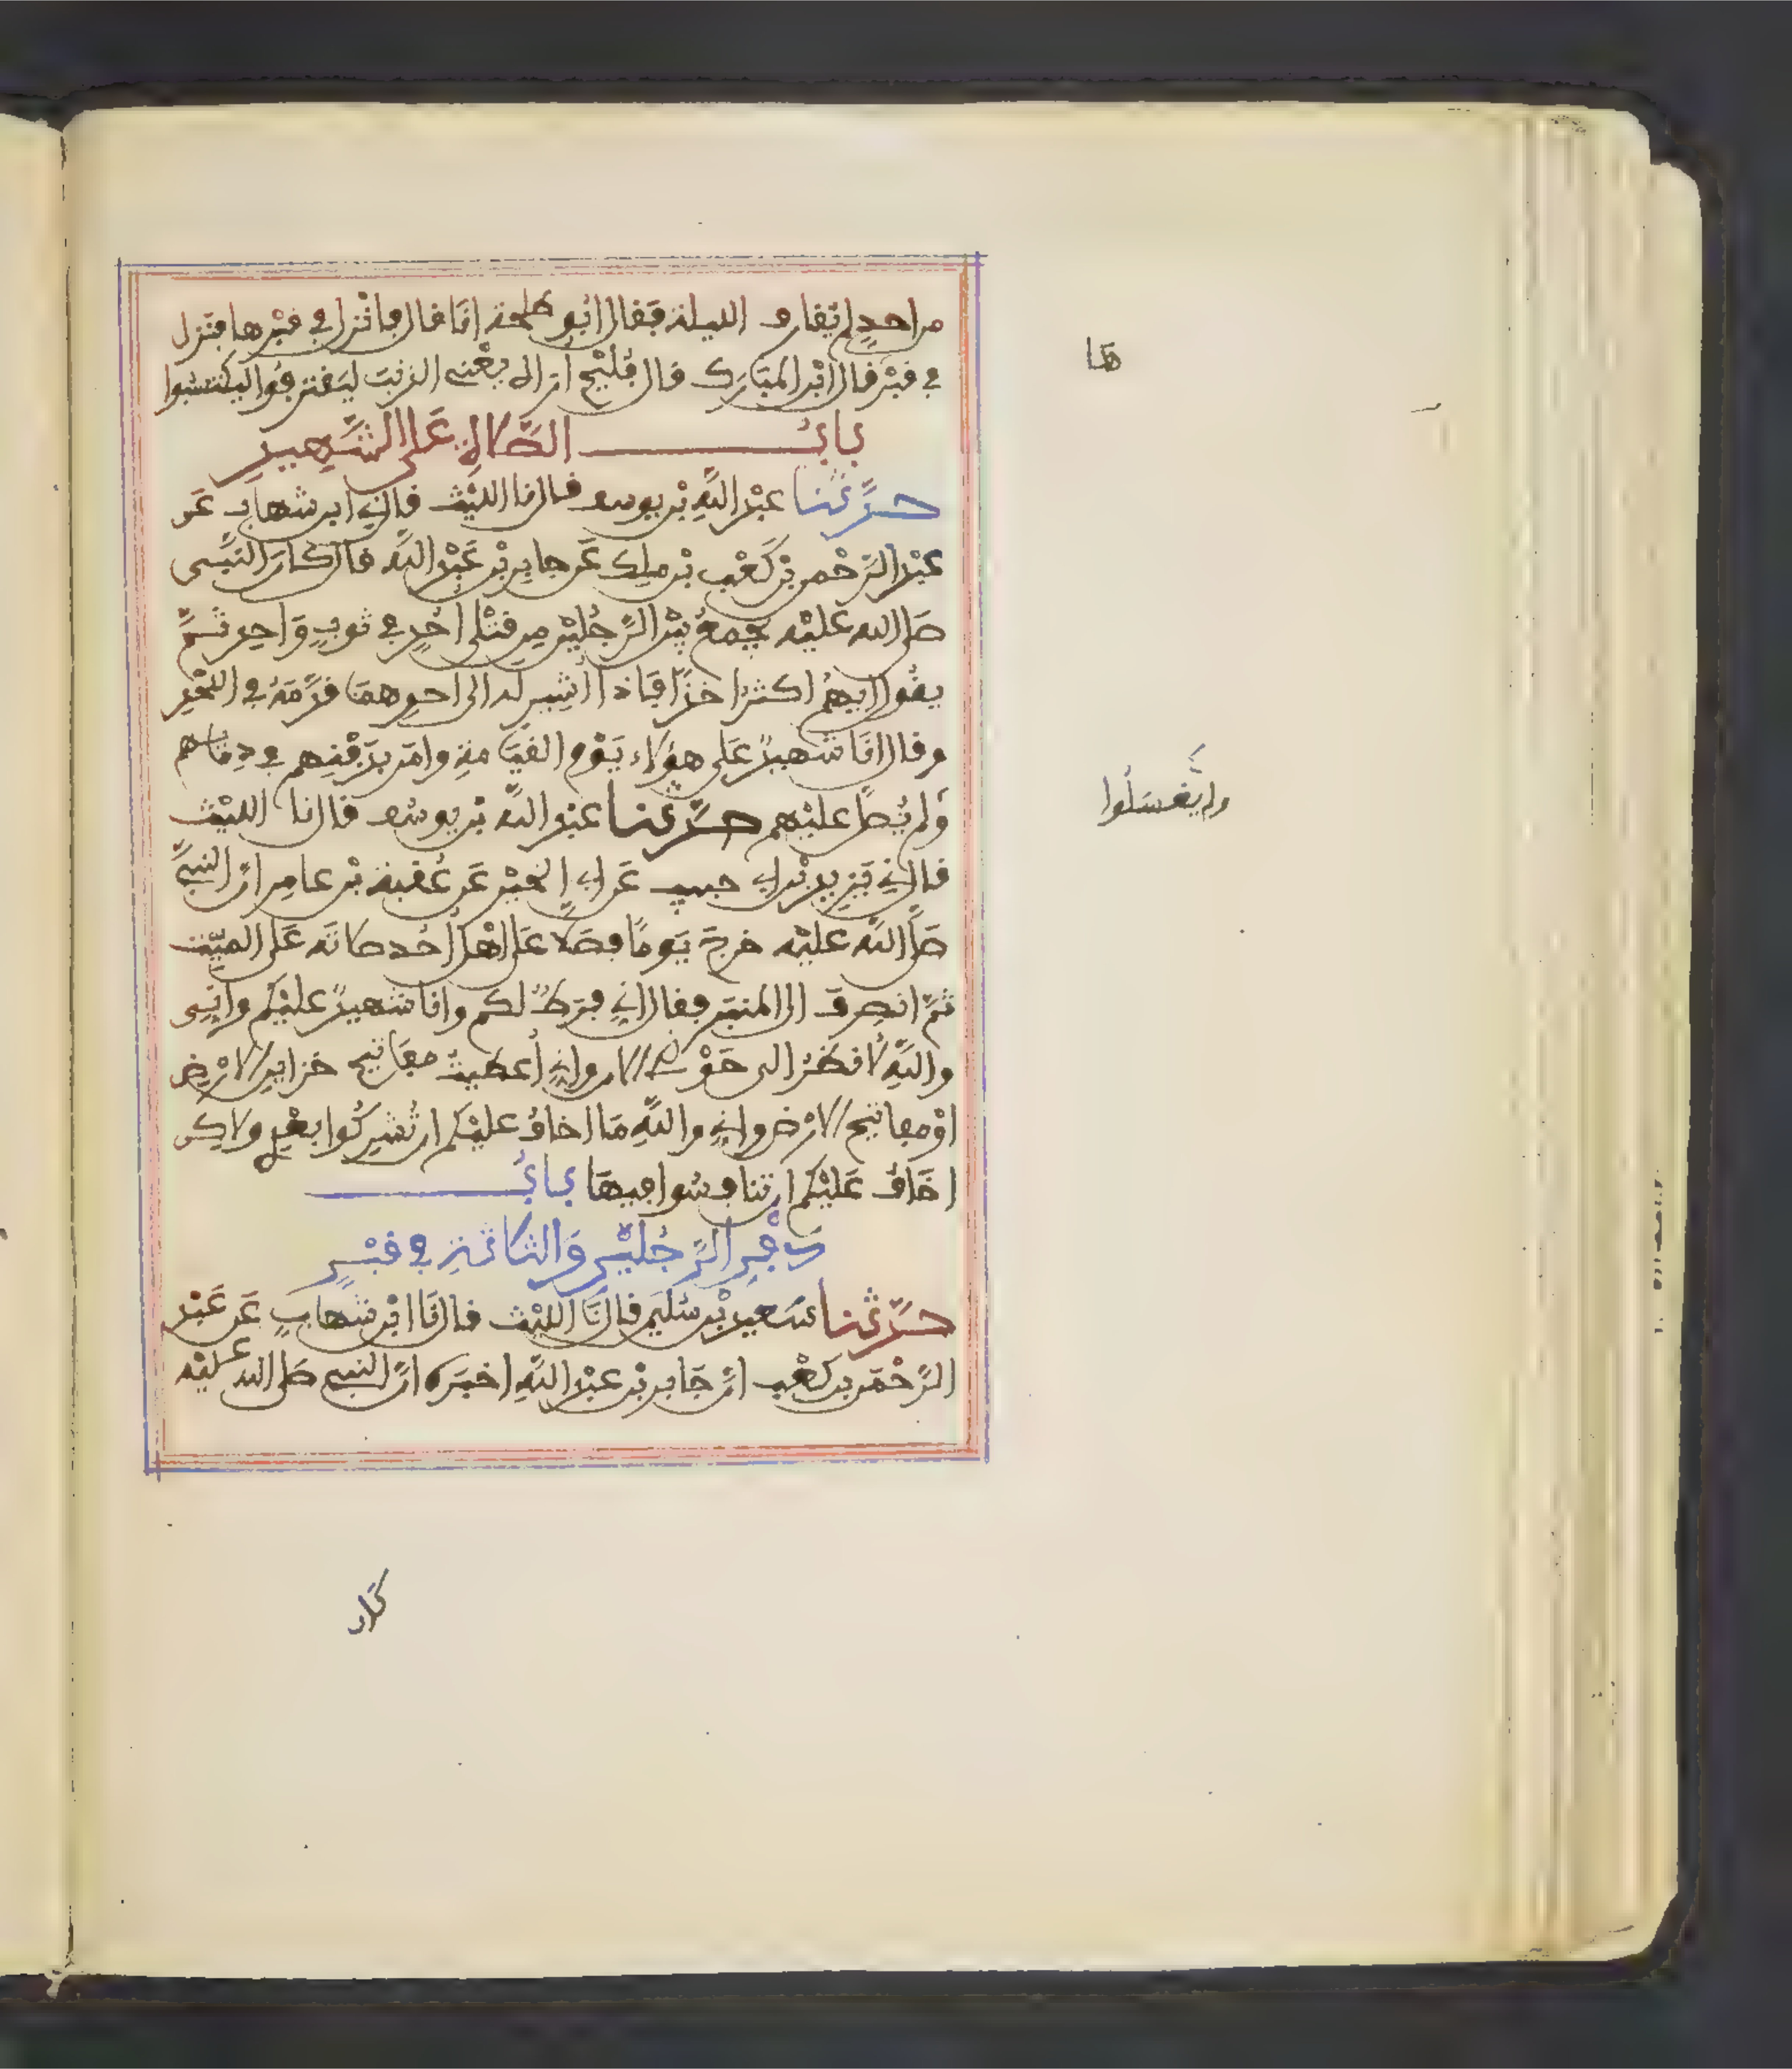 من احد لم يقارف الليلة فقال ابو طلحة انا قال فانزل في قبرها فنزل
في قبر قال ابن المبارك قال فليح اراه يعني الذنب ليقترفوا ليكتسبوا
باب الصلاة على الشهيد
حدثنا عبد الله بن يوسف قال نا الليث قال ني ابن شهاب عن
عبد الرحمن بن كعب بن ملك عن جابر بن عبد الله قال كان النبي
صلى الله عليه يجمع بين الرجلين من قتلى احد في ثوب واحد ثم
يقول ايهم اكثر اخذا فاذا اشير له الى احدهما قدمه في اللحد
وقال انا شهيد على هؤلاء يوم القيامة وامر بدفنهم في دمائهم
ولم يصل عليهم حدثنا عبد الله بن يوسف قال نا الليث
قال ني يزيد بن ابي حبيب عن ابي الخير عن عقبة بن عامر ان النبي
صلى الله عليه خرج يوما فصلا على اهل احد صلاته على الميت
ثم انصرف الى المنبر فقال اني فرط لكم وانا شهيد عليكم واني
والله لانظر الى حوضي الان واني أعطيت مفاتيح خزاين الارض
او مفاتيح الارض واني والله ما اخاف عليكم ان تشركوا بعدي ولاكن
اخاف عليكم ان تنافسوا فيها باب
دفن الرجلين والثلاثة في قبر
حدثنا سعيد بن سليمن قال نا الليث قال نا ابن شهاب عن عبد
الرحمن بن كعب ان جابر بن عبد الله اخبره ان النبي صلى الله عليه
ها
ولم يغسلوا
كان